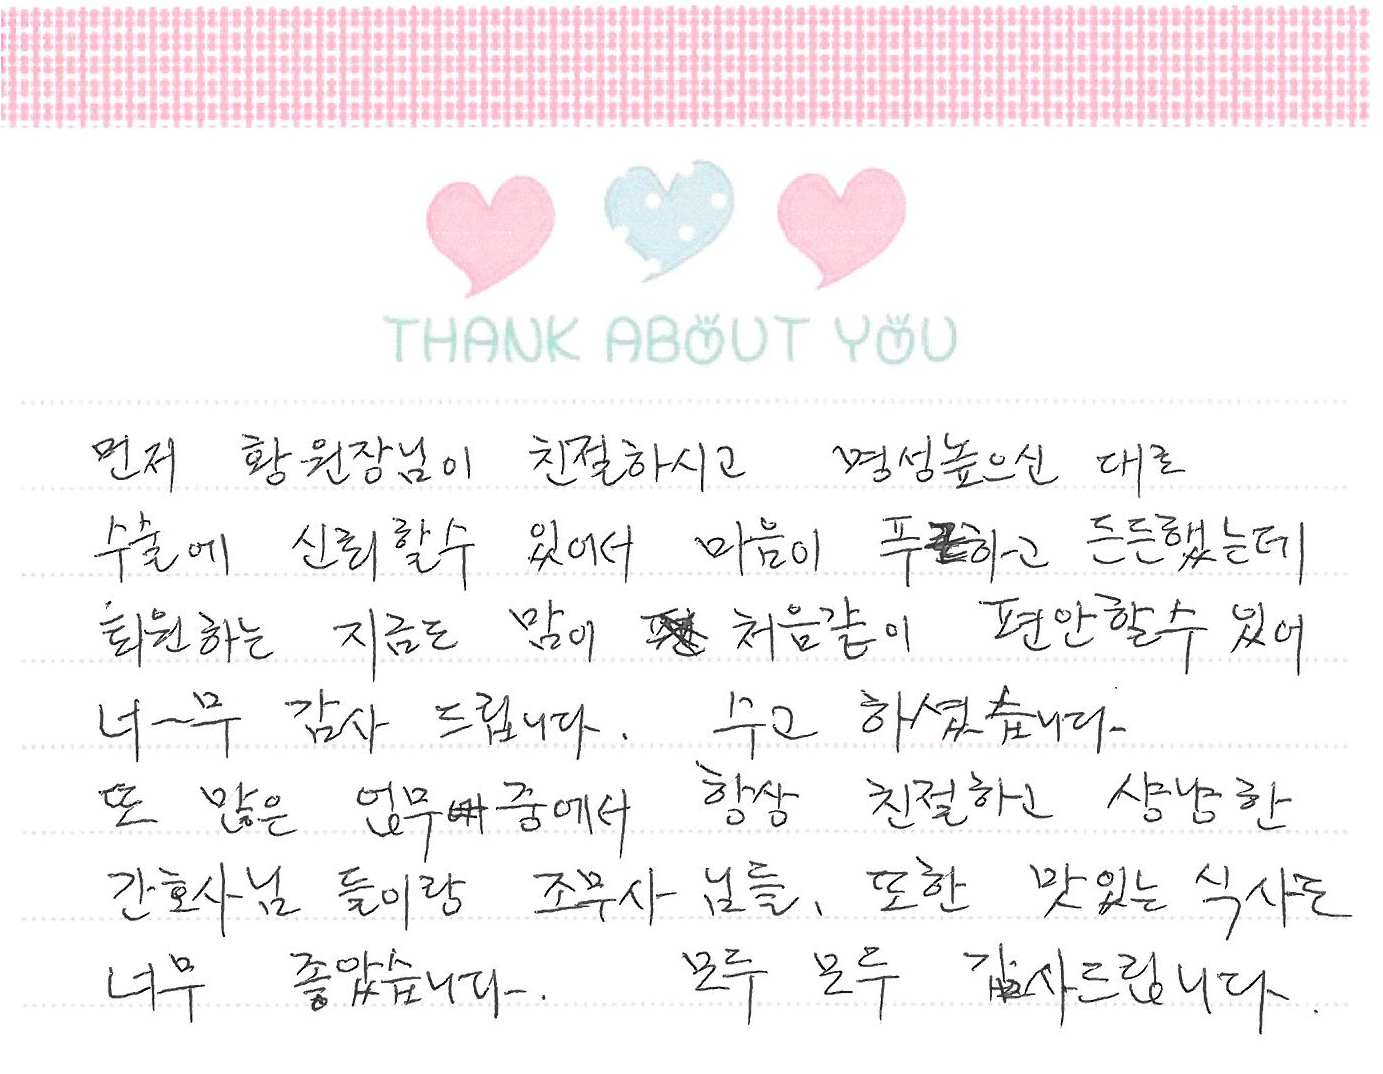 THANK ABOUT YOU
먼저 황원장님이 친절하시고 명성높으신 대로
수술에 신뢰할수 있어서 마음이 푸근하고 든든했는데
퇴원하는 지금도 맘이 처음같이 편안할수 있어
너~무 감사 드립니다. 수고 하셨습니다.
또 많은 업무 중에서 항상 친절하고 상냥한
간호사님 들이랑 조무사 님들, 또한 맛있는 식사도
너무 좋았습니다. 모두 모두 감사드립니다.